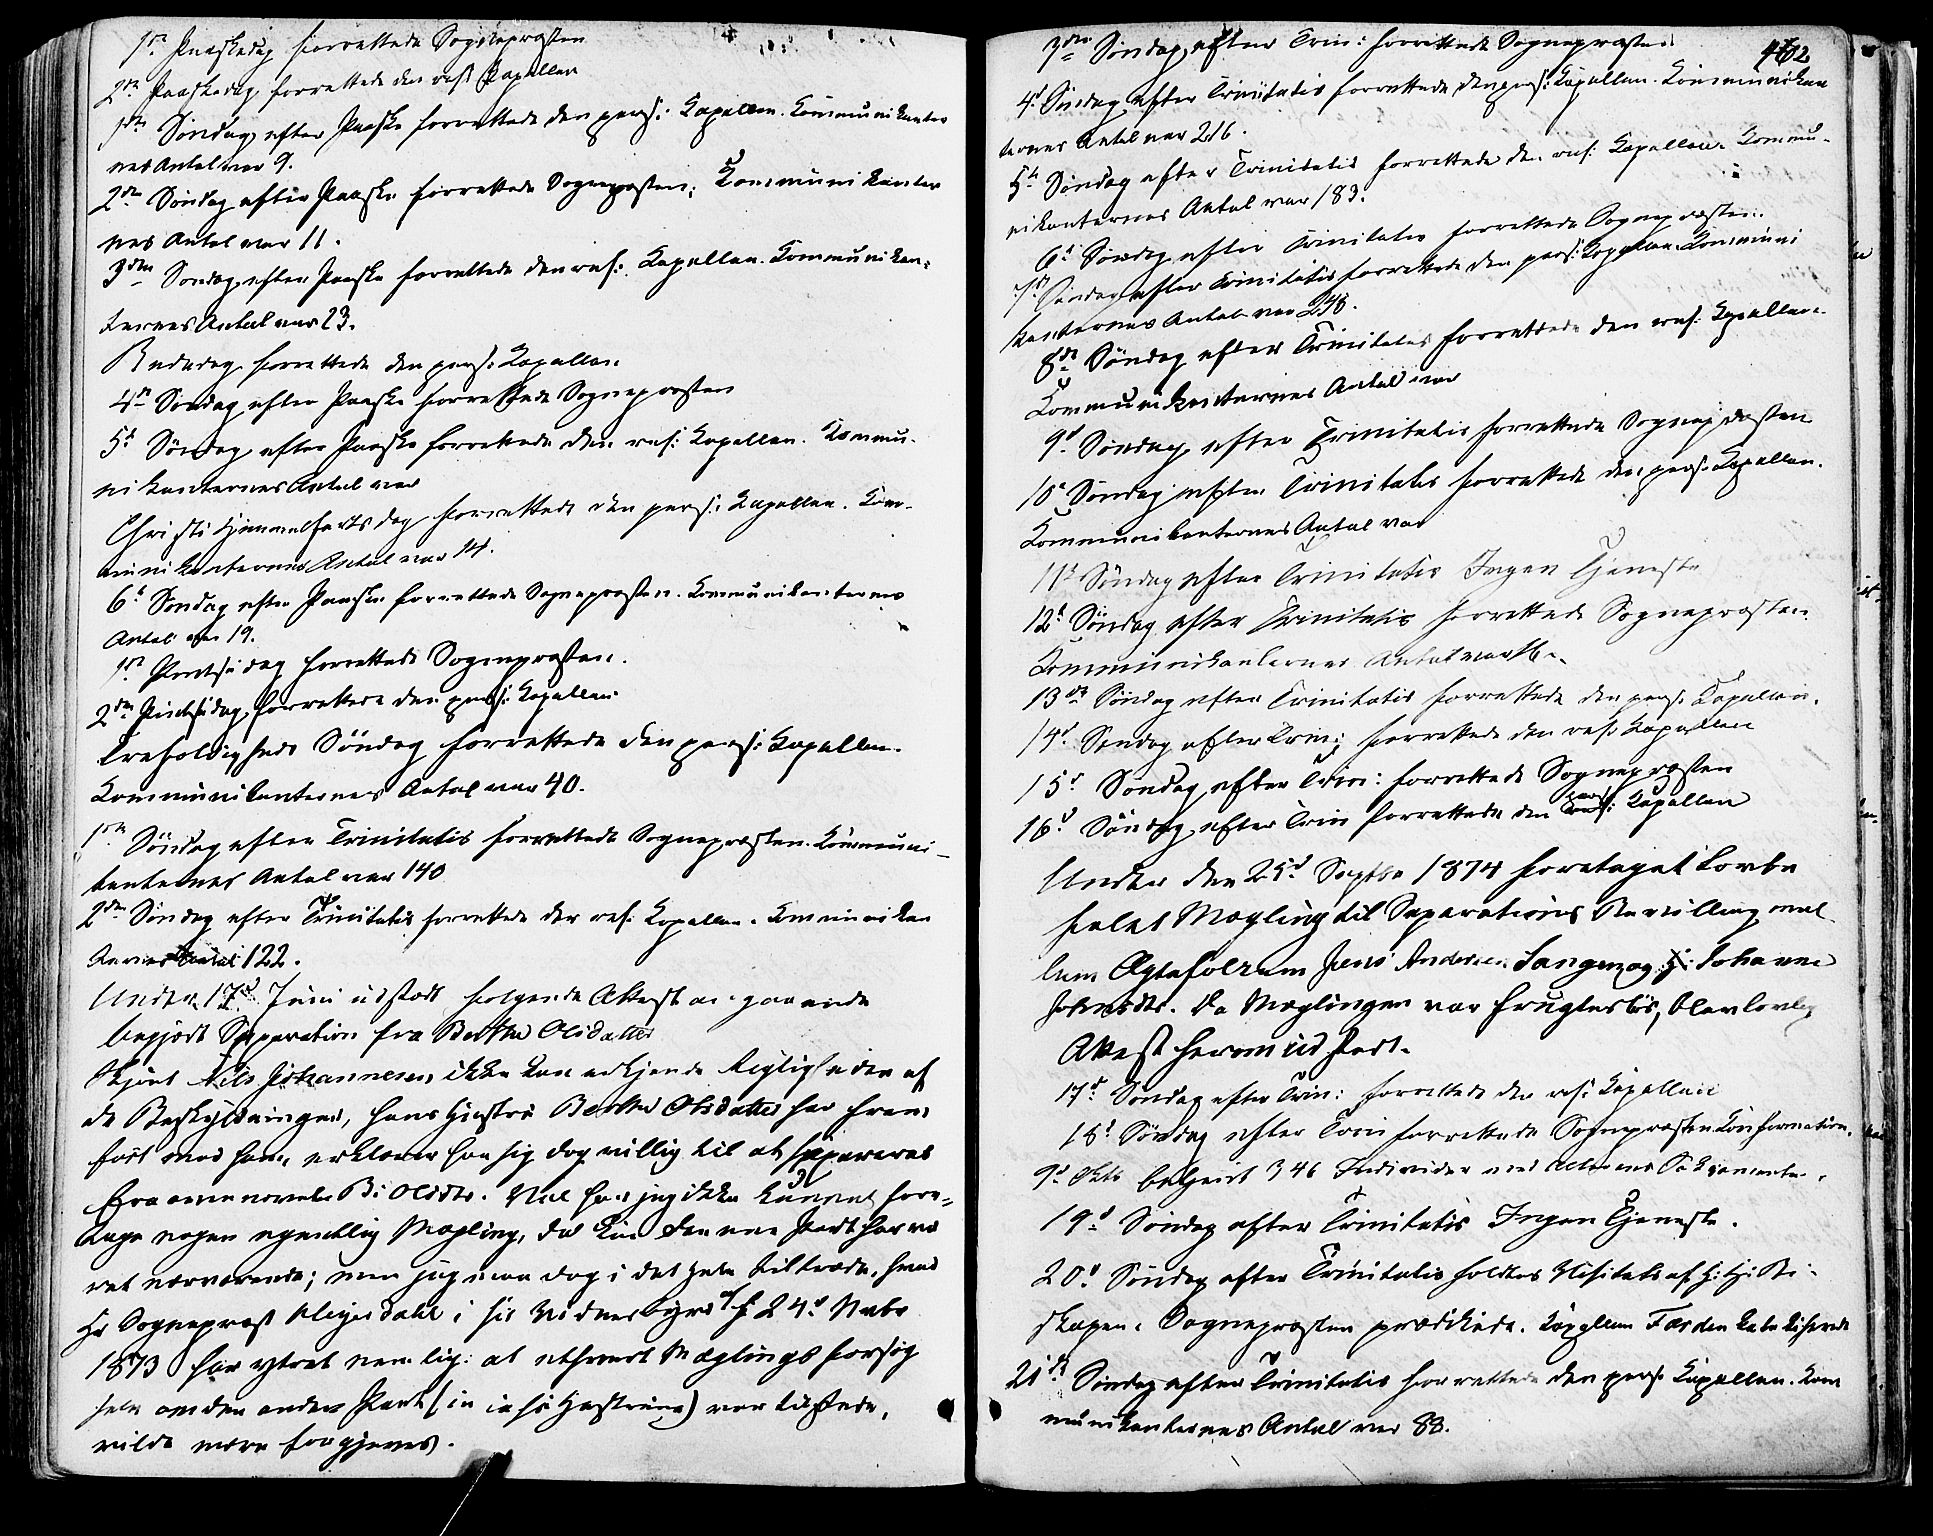 1ste Paaskedag forrettede Sognepræsten
2den Paaskedag forrettede den res: Kapellan
1ste Søndag efter Paaske forrettede den pers: Kapellan. Kommunikanter
nes Antal var 9.
2den Søndag efter Paaske forrettede Sognepræsten. Kommunikanter
nes Antal var 11.
3die Søndag efter Paaske forrettede den res: Kapellan. Kommunikan-
ternes Antal var 23.
Bededag forrettede den pers: Kapellan
4de Søndag efter Paaske forrettede Sognepræsten
5te Søndag efter Paaske forrettede den res: Kapellan. Kommu-
nikanternes Antal var
Christi Himmelfartsdag forrettede den pers: Kapellan. Kom-
munikanternes Antal var 14.
6te Søndag efter Paaske forrettede Sognepræsten. Kommunikanternes
Antal var 19.
1ste Pintsedag forrettede Sognepræsten.
2den Pintsedag forrettede den pers: Kapellan
Trefoldigheds Søndag forrettede den pers: Kapellan.
Kommunikanternes Antal var 40.
1ste Søndag efter Trinitatis forrettede Sognepræsten. Kommuni-
kanternes Antal var 140
2den Søndag efter Trinitatis forrettede den res: Kapellan. Kommunikan
ternes Antal 122.
Under 17de Juni udstædt følgende Attest angaaende
begjært Separation fra Berthe Olsdatter
Skjønt Nils Johannesen ikke kan erkjende Rigtigheden af
de Beskyldninger, hans Hustru Berthe Olsdatter har frem
ført mod ham, erklærer han sig dog villig til at separeres
fra ovennævnte B: Olsdtr. Vel har jeg ikke kunnet fore-
tage nogen egentlig Mægling, da kun den ene Part har væ
ret nærværende; men jeg maa dog i det Hele tiltræde, hvad
Hr Sognepræst i sit Vidnesbyrd af 24de Novbr
1873 har ytret nemlig: at ethvert Mæglings Forsøg
selv om den anden Part (in casu Hustruen) var tilstede,
vilde være forgjæves.
402
3die Søndag efter Trin: forrettede Sognepræsten
4de Søndag efter Trinitatis forrettede den pers: Kapellan. Kommunikan
ternes Antal var 216.
5te Søndag efter Trinitatis forrettede den res: Kapellan. Kommu-
nikanternes Antal var 183.
6te Søndag efter Trinitatis forrettede Sognepræsten.
7de Søndag efter Trinitatis forrettede den pers: Kapellan. Kommuni
kanternes Antal var
8de Søndag efter Trinitatis forrettede den res: Kapellan.
Kommunikanternes Antal var
9de Søndag efter Trinitatis forrettede Sognepræsten
10de Søndag efter Trinitatis forrettede den pers: Kapellan.
Kommunikanternes Antal var
11te Søndag efter Trinitatis Ingen Tjeneste
12te Søndag efter Trinitatis forrettede Sognepræsten.
Kommunikanternes Antal var
13de Søndag efter Trinitatis forrettede den pers: Kapellan.
14de Søndag efter Trin: forrettede den res: Kapellan
15de Søndag efter Trin: forrettede Sognepræsten
16de Søndag efter Trin forrettede den pers: Kapellan
Under den 25de Septbr 1874 foretaget lovbe
falet Mægling til Separations Bevilling mel-
lem Ægtefolkene Jens Andersen Langem og Johanne
Johnsdtr. Da Mæglingen var frugtesløs, blev lovlig
Attest herom udstedt.
17de Søndag efter Trin: forrettede den res: Kapellan
18de Søndag efter Trin forrettede Sognepræsten Konfirmation.
9de Oktb betjent 346 Individer med Alterens Sakramente.
19de Søndag efter Trinitatis Ingen Tjeneste.
20de Søndag efter Trinitatis holdtes Visitats af H: H: Bi-
skopen. Sognepræsten prædikede. Kapellan Færden katekiserede
21de Søndag efter Trinitatis forrettede den pers: Kapellan. Kom
munikanternes Antal var 88.